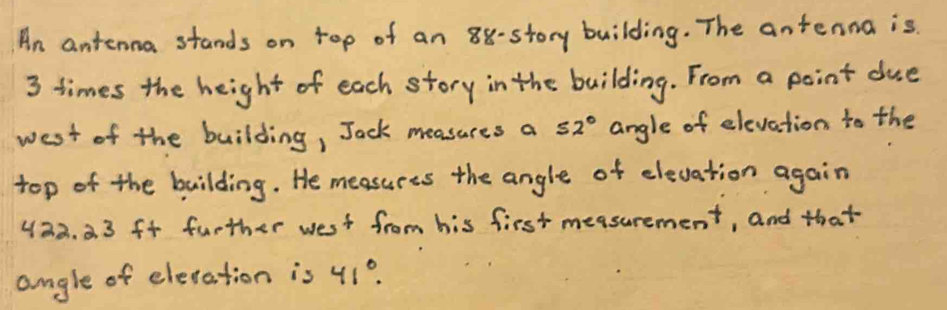 An antenna stands on top of an 88-story building. The antenna is
3 times the height of each story in the building. From a point due
west of the building, Jack measures a 52° angle of elevation to the
top of the building. He measures the angle of elevation again
422.23 ft further west from his first measurement, and that
angle of elevation is 41°.